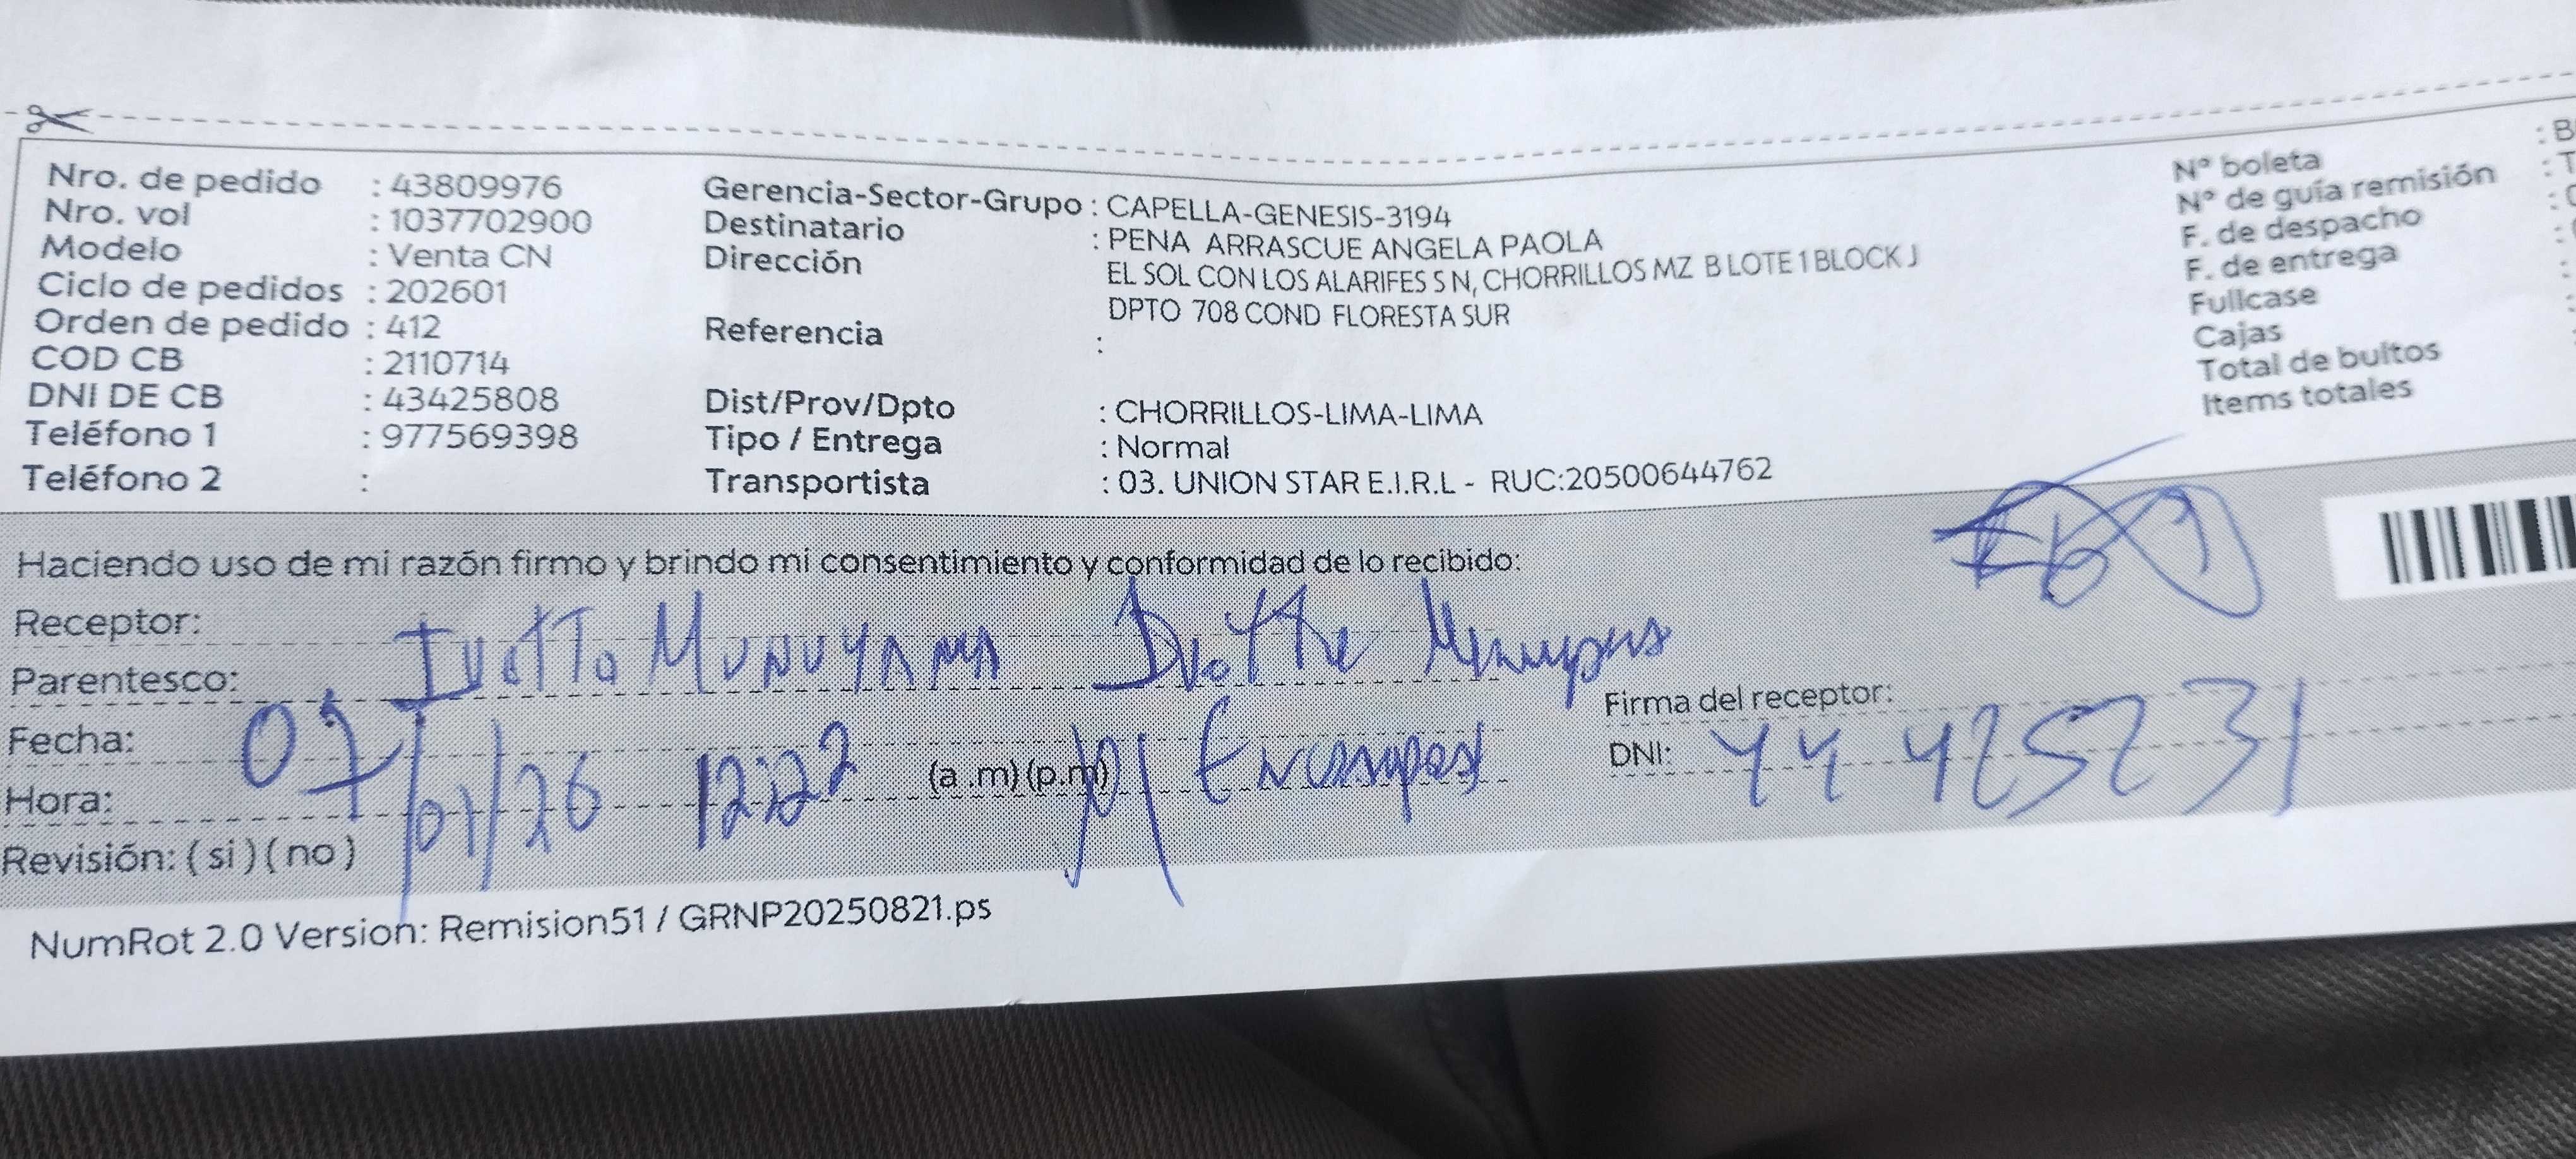 Nro. de pedido : 43809976
Nro. vol : 1037702900
Modelo : Venta CN
Ciclo de pedidos : 202601
Orden de pedido : 412
COD CB : 2110714
DNI DE CB : 43425808
Teléfono 1 : 977569398
Teléfono 2 :
Gerencia-Sector-Grupo : CAPELLA-GENESIS-3194
Destinatario : PENA ARRASCUE ANGELA PAOLA
Dirección EL SOL CON LOS ALARIFES S N, CHORRILLOS MZ B LOTE 1 BLOCK J
DPTO 708 COND FLORESTA SUR
Referencia :
Dist/Prov/Dpto : CHORRILLOS-LIMA-LIMA
Tipo / Entrega : Normal
Transportista : 03. UNION STAR E.I.R.L - RUC:20500644762
N° boleta
N° de guía remisión
F. de despacho
F. de entrega
Fullcase
Cajas
Total de bultos
Items totales
Haciendo uso de mi razón firmo y brindo mi consentimiento y conformidad de lo recibido:
Receptor:
Parentesco:
Fecha: 07/01/26 12:22
Hora: (a.m)(p.m)
Revisión: (si)(no)
Firma del receptor:
DNI: 44425231
NumRot 2.0 Version: Remision51 / GRNP20250821.ps